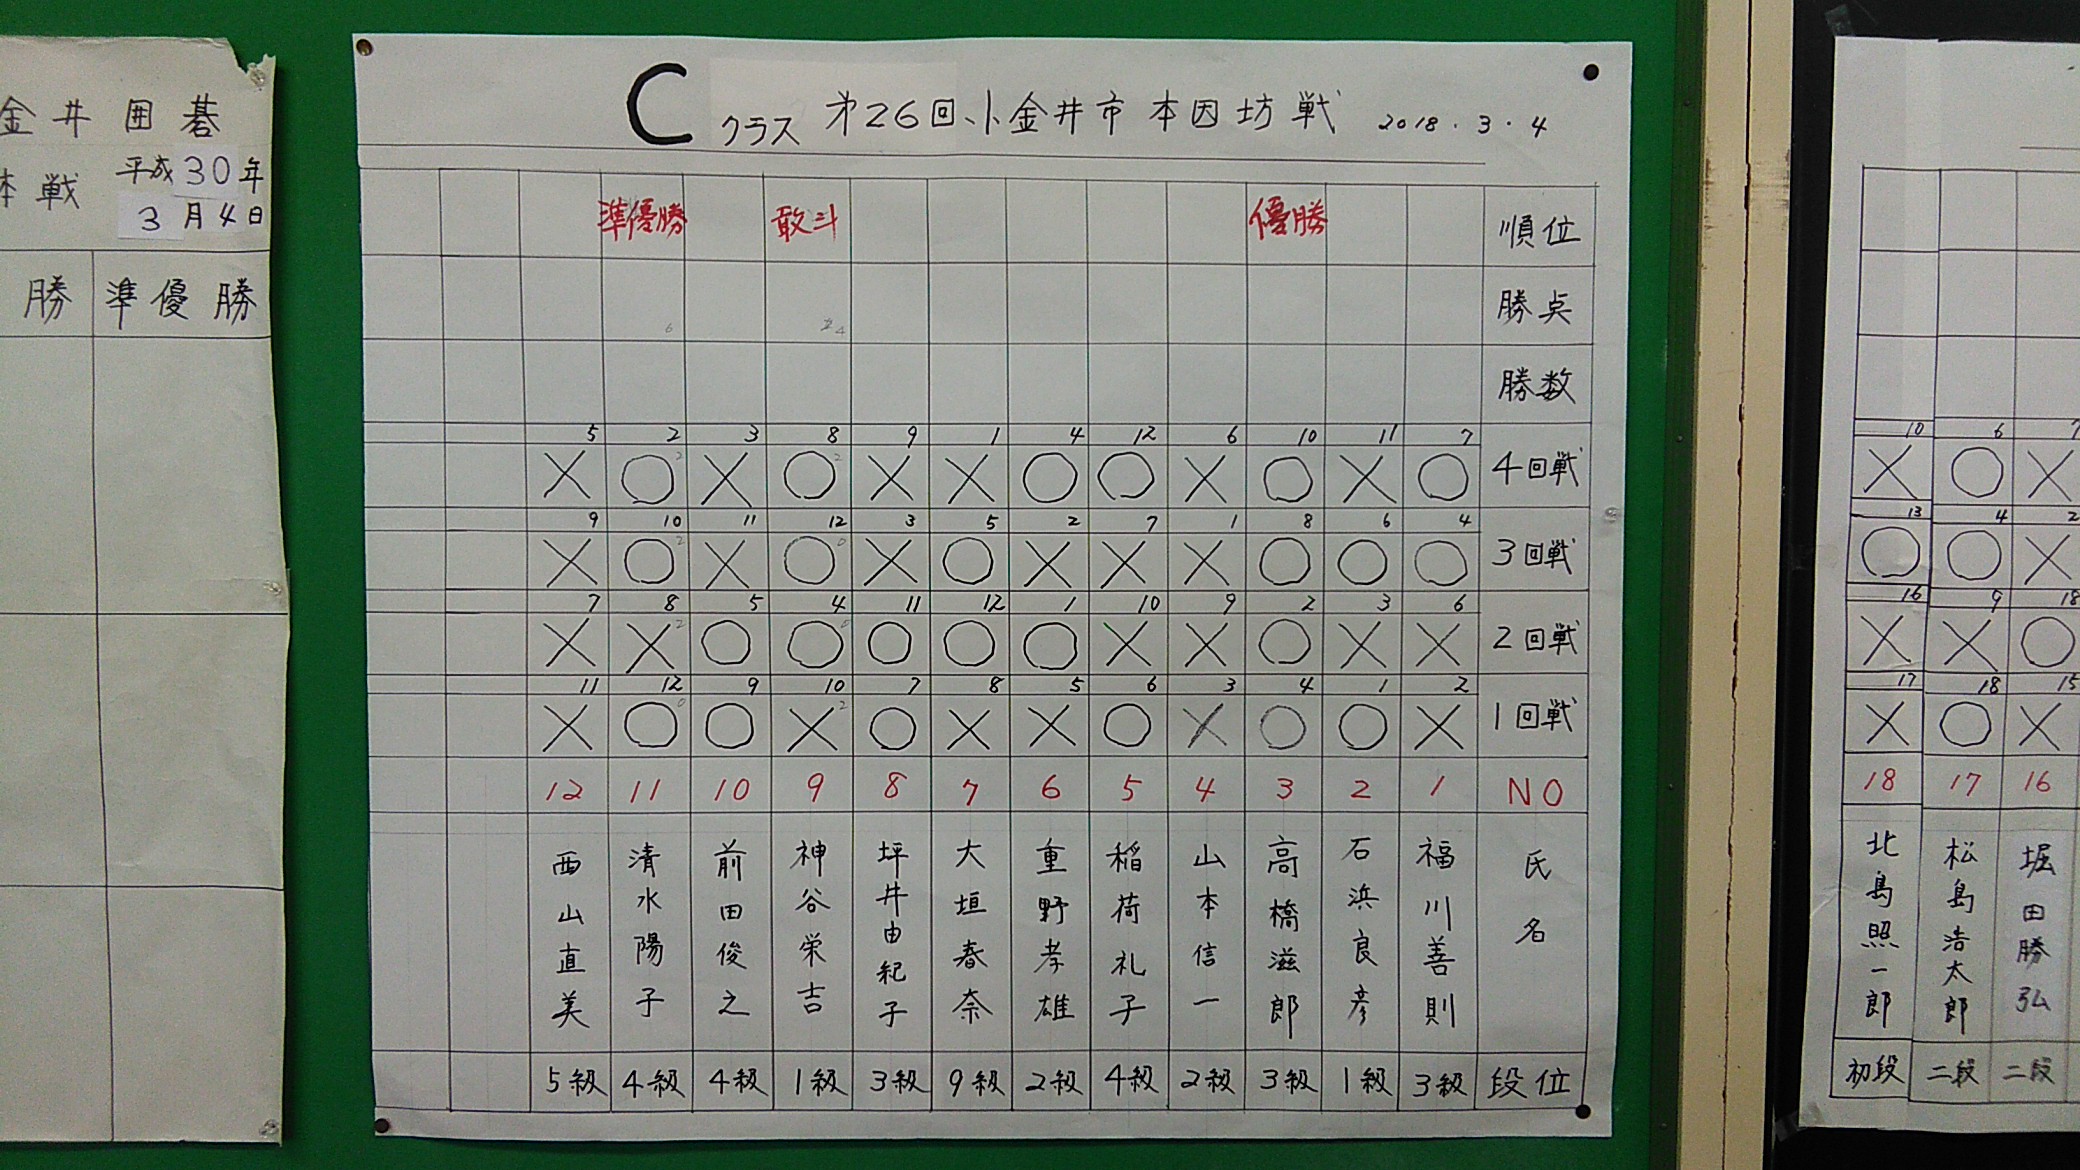 金井囲碁
本戦 平成30年
3月4日
勝 準優勝
C クラス 第26回小金井市本因坊戦 2018.3.4
準優勝 敢斗 優勝 順位
勝点
勝数
5 2 3 8 9 1 4 12 6 10 11 7
× ○ × ○ × × ○ ○ × ○ × ○ 4回戦
9 10 11 12 3 5 2 7 1 8 6 4
× ○ × ○ × ○ × × × ○ ○ ○ 3回戦
7 8 5 4 11 12 1 10 9 2 3 6
× × ○ ○ ○ ○ ○ × × ○ × × 2回戦
11 12 9 10 7 8 5 6 3 4 1 2
× ○ ○ × ○ × × ○ × ○ ○ × 1回戦
12 11 10 9 8 7 6 5 4 3 2 1 NO
氏名
福川善則
石浜良彦
高橋滋郎
山本信一
稲荷礼子
重野孝雄
大垣春奈
坪井由紀子
神谷栄吉
前田俊之
清水陽子
西山直美
5級 4級 4級 1級 3級 9級 2級 4級 2級 3級 1級 3級 段位
10 6 7
× ○ ×
13 4 2
○ ○ ×
16 9 18
× × ○
17 18 15
× ○ ×
18 17 16
堀田勝弘
松島浩太郎
北島照一郎
初段 二段 二段